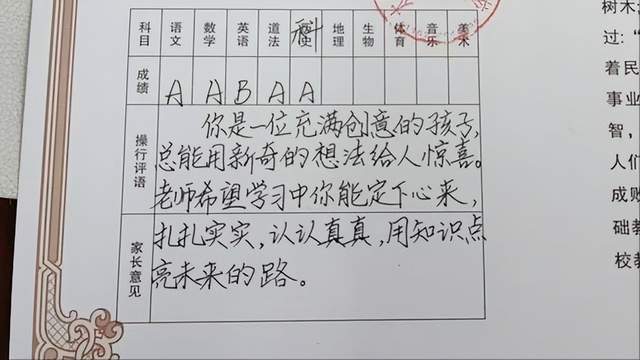 科目 语文 数学 英语 道法 科 史 地理 生物 体育 音乐 美术
成绩 A A B A A
操行评语
你是一位充满创意的孩子,
总能用新奇的想法给人惊喜。
老师希望学习中你能定下心来,
家长意见
扎扎实实,认认真真,用知识点
亮未来的路。
树木;
过:“
着民
事业
智,
人们
成败
础教
校教